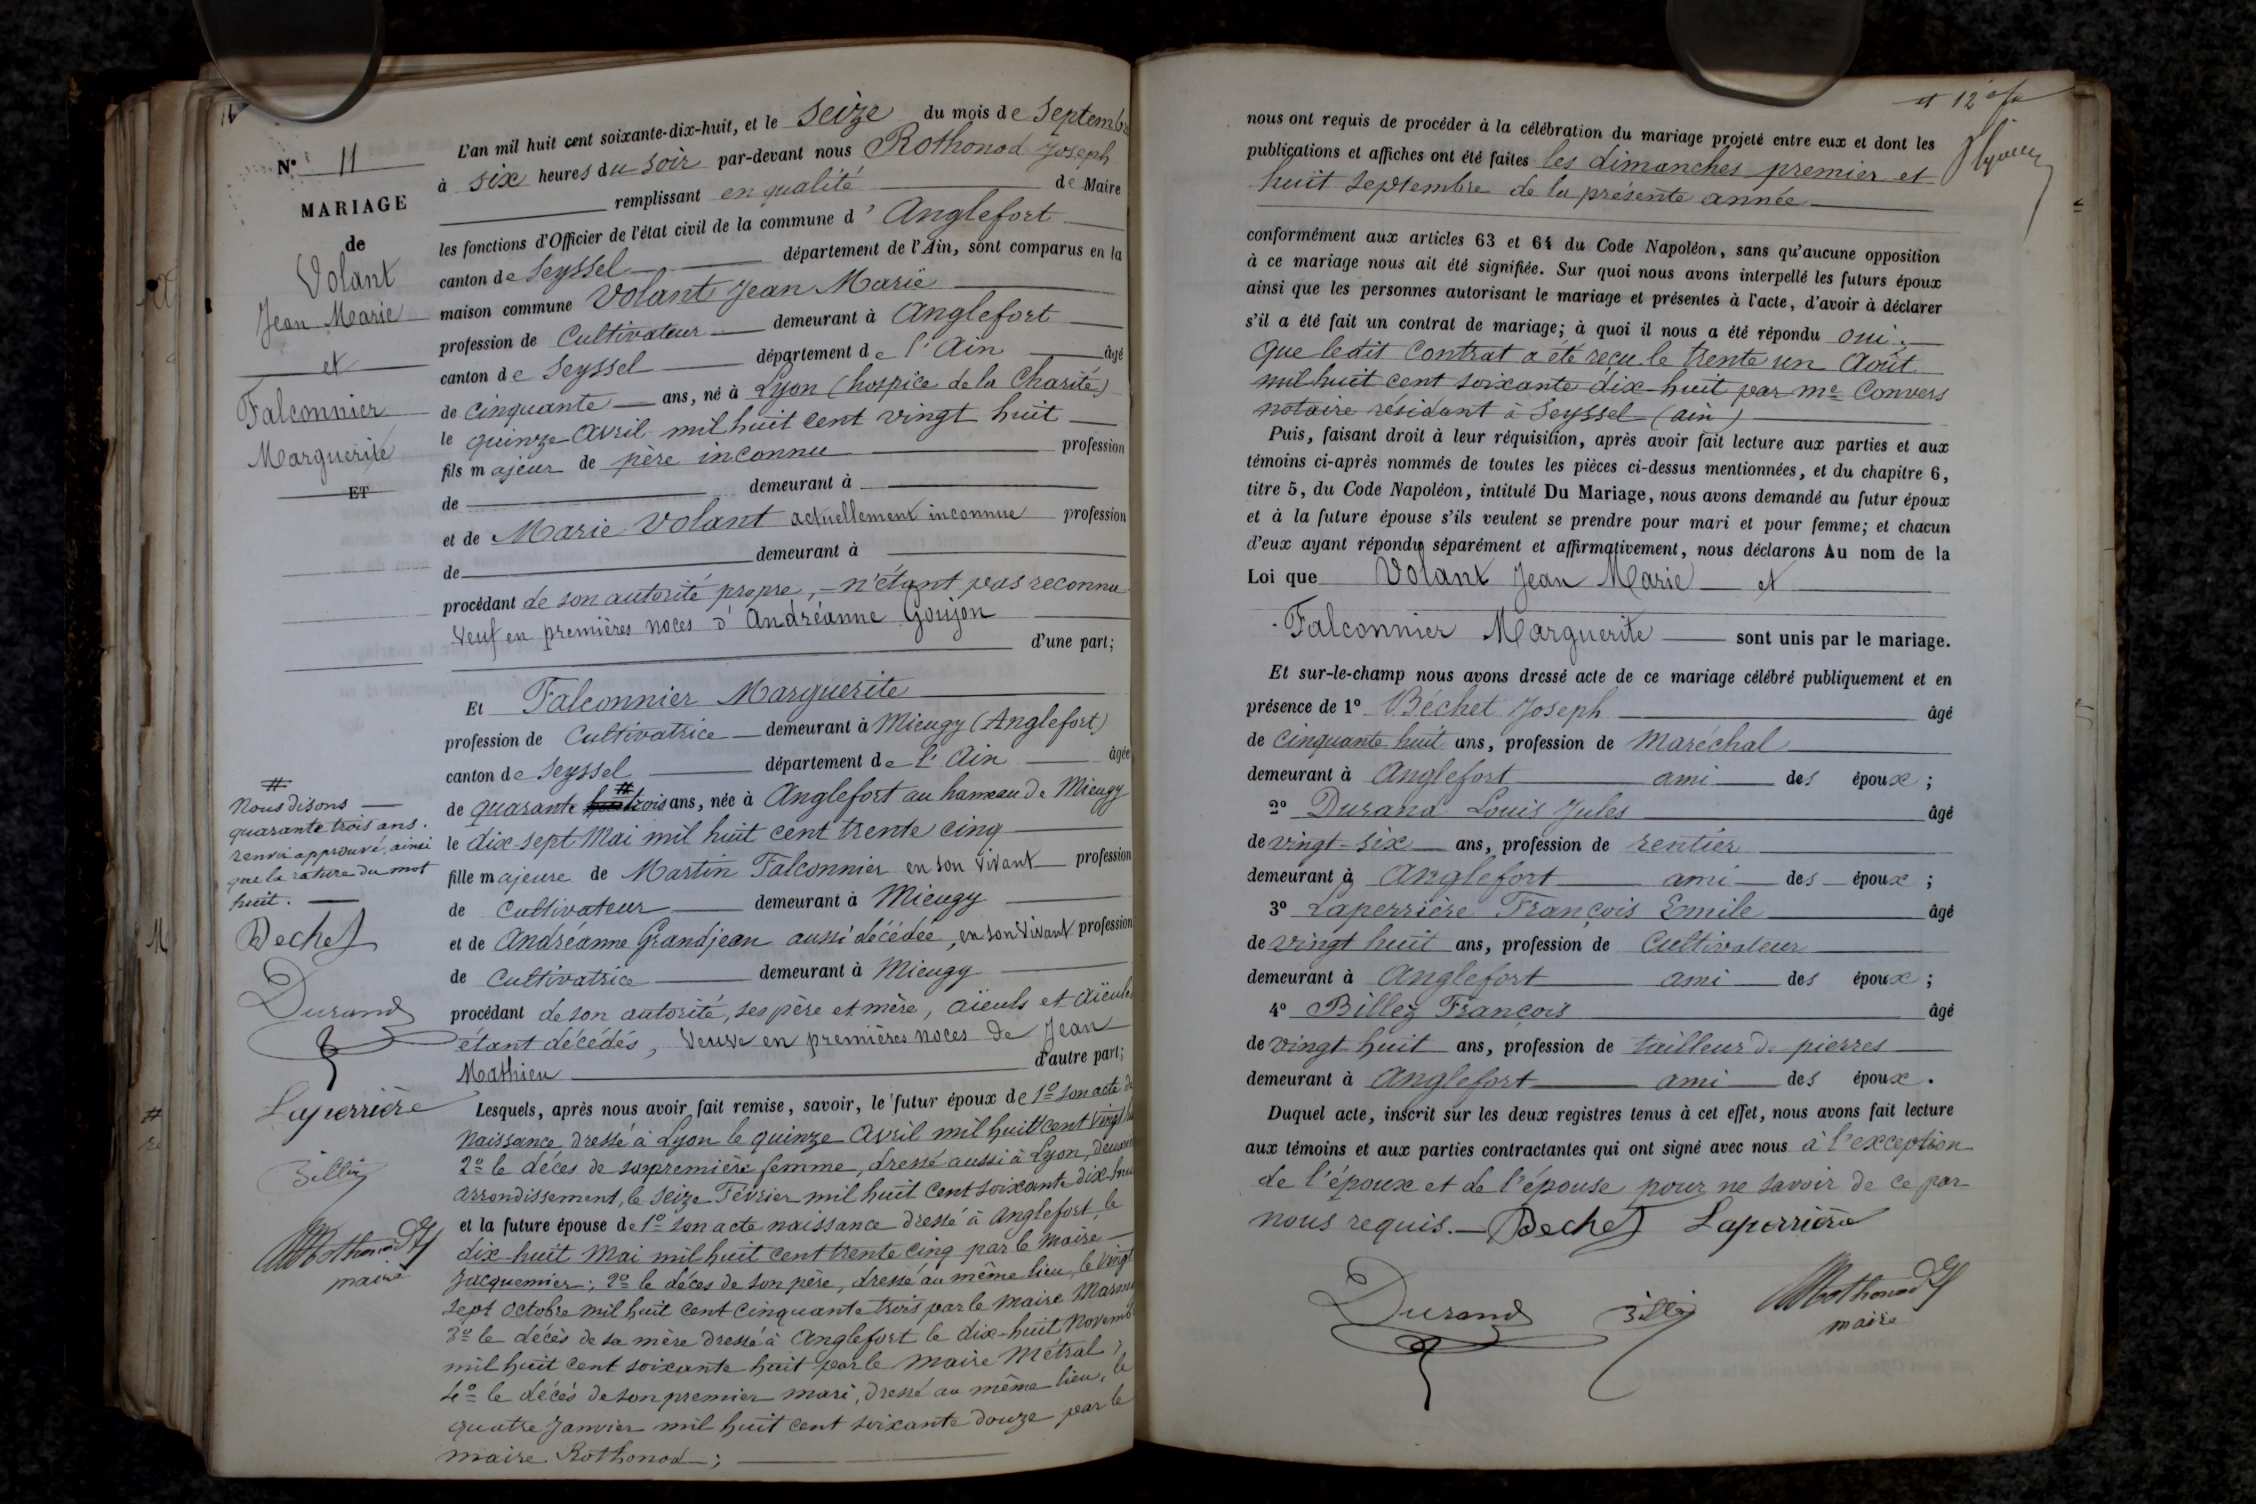 N° 11
MARIAGE
de
Volant
Jean Marie
et
Falconnier
Marguerite
ET
L'an mil huit cent soixante-dix-huit, et le seize du mois de Septembre
à six heures du soir par-devant nous Rothonod Joseph
remplissant en qualité de Maire
les fonctions d'Officier de l'état civil de la commune d'Anglefort
canton de Seyssel département de l'Ain, sont comparus en la
maison commune Volant Jean Marie
profession de Cultivateur demeurant à Anglefort
canton de Seyssel département de l'Ain âgé
de cinquante ans, né à Lyon (hospice de la Charité)
le quinze avril mil huit cent vingt huit
fils majeur de père inconnu profession
de demeurant à
et de Marie Volant actuellement inconnue profession
de demeurant à
procédant de son autorité propre, n'étant pas reconnu
Veuf en premières noces d'Andréanne Goujon
d'une part;
Et Falconnier Marguerite
profession de Cultivatrice demeurant à Mieugy (Anglefort)
canton de Seyssel département de l'Ain âgée
de quarante huit # trois ans, née à Anglefort au hameau de Mieugy
le dix-sept Mai mil huit cent trente cinq
fille majeure de Martin Falconnier en son vivant profession
de Cultivateur demeurant à Mieugy
et de Andréanne Grandjean aussi décédée, en son vivant profession
de Cultivatrice demeurant à Mieugy
procédant de son autorité, ses père et mère, aïeuls et aïeules
étant décédés, Veuve en premières noces de Jean
Mathieu d'autre part;
Lesquels, après nous avoir fait remise, savoir, le futur époux de 1° son acte de
naissance dressé à Lyon le quinze avril mil huit cent vingt
2° le décès de sa première femme, dressé aussi à Lyon, deuxième
arrondissement, le seize Février mil huit cent soixante dix-huit
et la future épouse de 1° son acte naissance dressé à Anglefort, le
dix-huit Mai mil huit cent trente cinq par le Maire
Jacquemier; 2° le décès de son père, dressé au même lieu, le vingt
sept octobre mil huit cent cinquante trois par le Maire
3° le décès de sa mère dressé à Anglefort le dix-huit Novembre
mil huit cent soixante huit par le Maire Métral;
4° le décès de son premier mari, dressé au même lieu, le
quatre Janvier mil huit cent soixante douze par le
maire Rothonod;
#
Nous disons
quarante trois ans.
renvoi approuvé, ainsi
que la rature du mot
huit.
Bechet
Durand
Laperrière
Billiez
Rothonod
maire
et 12e
nous ont requis de procéder à la célébration du mariage projeté entre eux et dont les
publications et affiches ont été faites les dimanches premier et
huit Septembre de la présente année
conformément aux articles 63 et 64 du Code Napoléon, sans qu'aucune opposition
à ce mariage nous ait été signifiée. Sur quoi nous avons interpellé les futurs époux
ainsi que les personnes autorisant le mariage et présentes à l'acte, d'avoir à déclarer
s'il a été fait un contrat de mariage; à quoi il nous a été répondu oui.
que ledit Contrat a été reçu le trente un Août
mil huit cent soixante dix-huit par Me Convers
notaire résidant à Seyssel (ain)
Puis, faisant droit à leur réquisition, après avoir fait lecture aux parties et aux
témoins ci-après nommés de toutes les pièces ci-dessus mentionnées, et du chapitre 6,
titre 5, du Code Napoléon, intitulé Du Mariage, nous avons demandé au futur époux
et à la future épouse s'ils veulent se prendre pour mari et pour femme; et chacun
d'eux ayant répondu séparément et affirmativement, nous déclarons Au nom de la
Loi que Volant Jean Marie et
Falconnier Marguerite sont unis par le mariage.
Et sur-le-champ nous avons dressé acte de ce mariage célébré publiquement et en
présence de 1° Béchet Joseph âgé
de cinquante huit ans, profession de Maréchal
demeurant à Anglefort ami des époux;
2° Durand Louis Jules âgé
de vingt-six ans, profession de rentier
demeurant à Anglefort ami des époux;
3° Laperrière François Emile âgé
de vingt huit ans, profession de Cultivateur
demeurant à Anglefort ami des époux;
4° Billiez François âgé
de vingt huit ans, profession de tailleur de pierres
demeurant à Anglefort ami des époux.
Duquel acte, inscrit sur les deux registres tenus à cet effet, nous avons fait lecture
aux témoins et aux parties contractantes qui ont signé avec nous à l'exception
de l'époux et de l'épouse pour ne savoir de ce par
nous requis. Bechet Laperrière
Durand Billiez Rothonod
maire